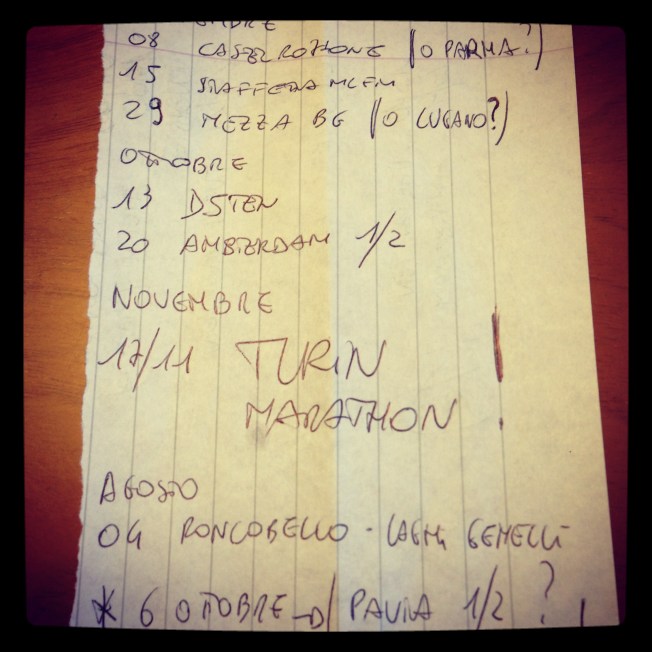 MBRE
08 CASTELROTTONE (O PARMA?)
15 STAFFETTA MCFM
29 MEZZA BG (O LUGANO?)
OTTOBRE
13 DSTEN
20 AMSTERDAM 1/2
NOVEMBRE
17/11 TURIN !
MARATHON
AGOSTO
04 RONCOBELLO - LAGHI GEMELLI
* 6 OTTOBRE → PAVIA 1/2 ?